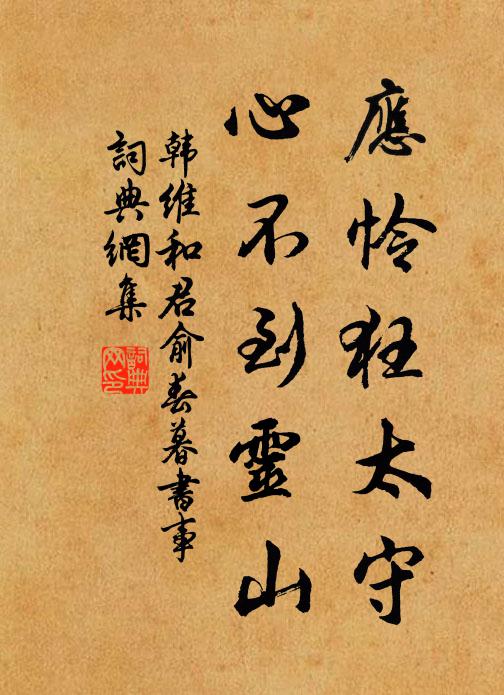 應怜狂太守
心不到靈山
韩维和君俞春暮書事
詞典網集
詞典網印